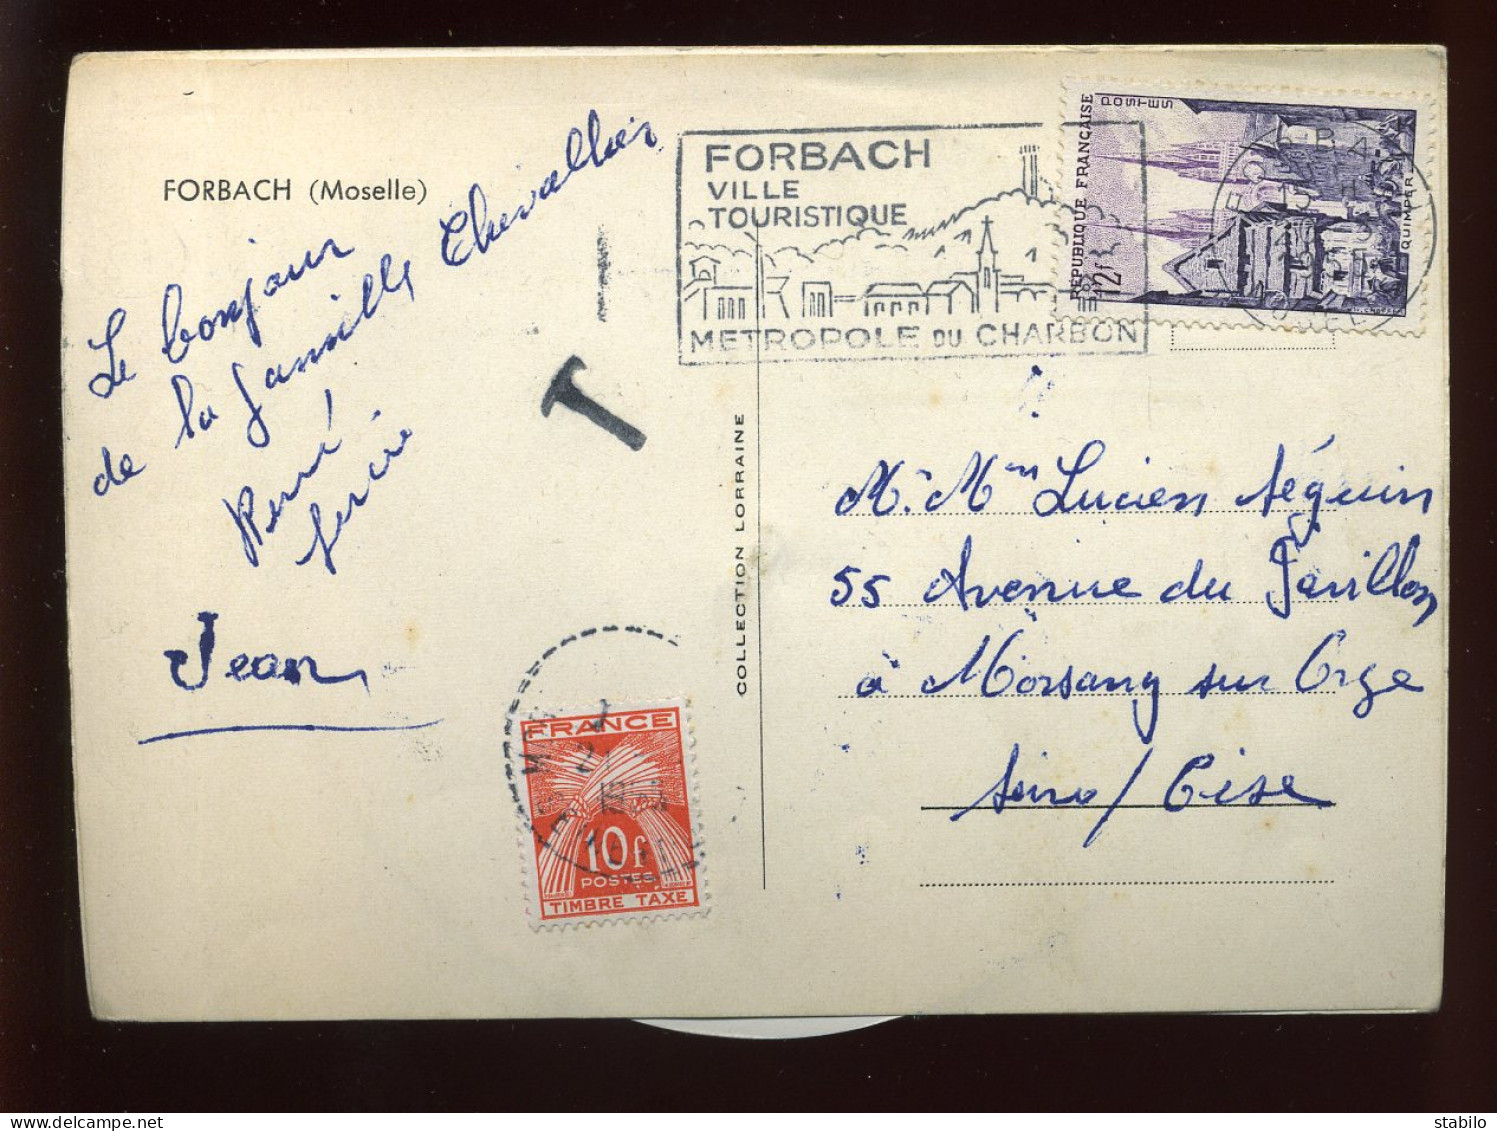 FORBACH (Moselle)
Le bonjour
de la famille Chevallier
René
Jean
FORBACH
VILLE
TOURISTIQUE
METROPOLE DU CHARBON
RÉPUBLIQUE FRANÇAISE
POSTES
12f
QUIMPER
COLLECTION LORRAINE
M. Mme Lucien Séguin
55 Avenue du Pavillon
à Morsang sur Orge
Seine / Oise
T
FRANCE
10f
POSTES
TIMBRE TAXE
delcampe.net
stabilo